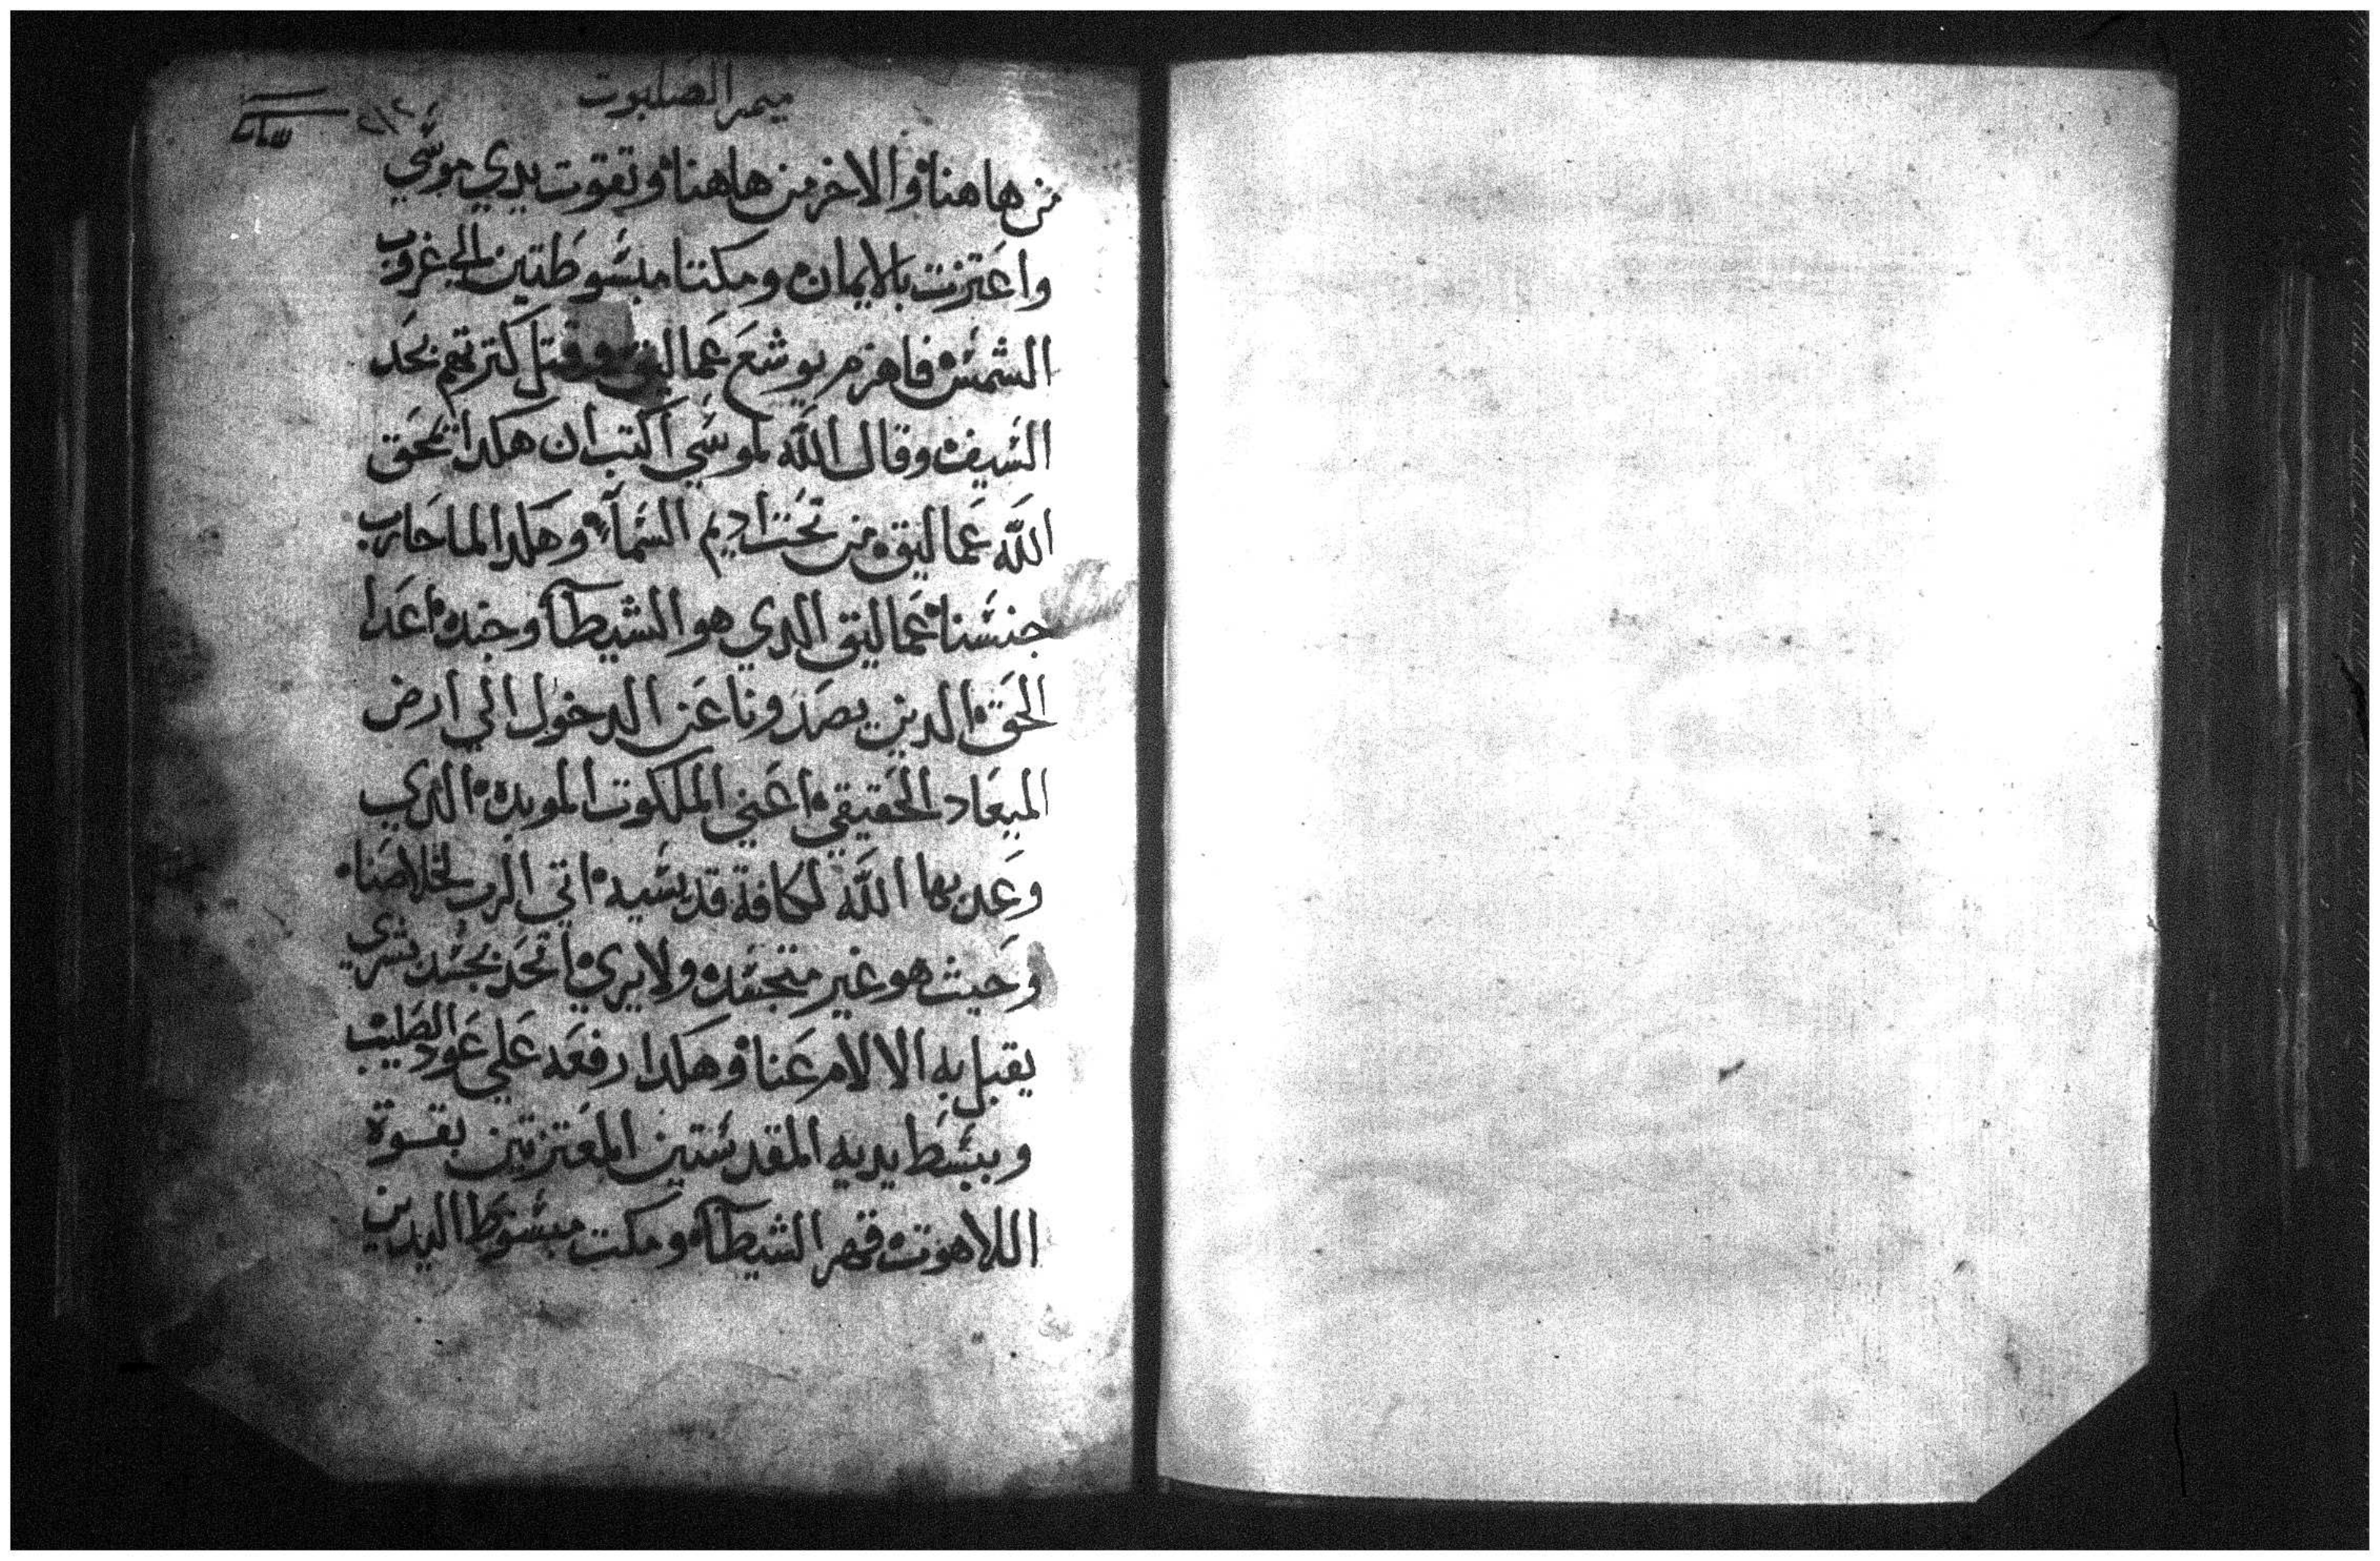 ميمر الصلبوت
من هاهنا والاخر من هاهنا وتقوت يدي موسي
واعتزت بالايمان ومكتتا مبسوطتين الي غروب
الشمس فاهزم يوشع عماليق وقتل كترتهم بحد
السيف وقال الله لموسي اكتب ان هكدا تمحق
الله عماليق من تحت اديم السمآ وهكدا لما حارب
جنسنا عماليق الدي هو الشيطان وجنده اعدا
الحق الدين يصدونا عن الدخول الي ارض
الميعاد الحقيقي اعني الملكوت الموبده الدي
وعد بها الله لكافة قديسيه اتي الرب لخلاصنا
وحيث هو غير متجسد ولا يري اتحد بجسد بشري
يقبل به الالام عنا وهكدا رفعه علي عود الصليب
وببسط يديه المقدستين المعتزتين بقوة
اللاهوت قهر الشيطان ومكت مبسوط اليدين